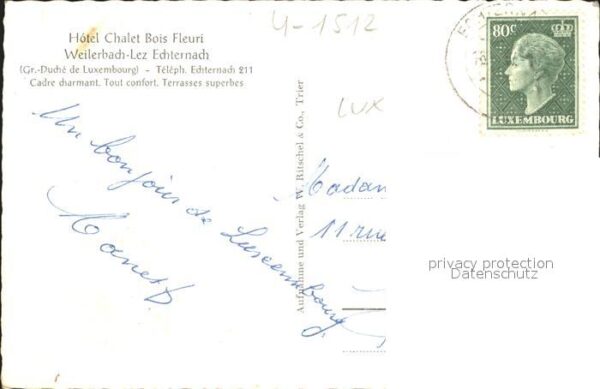 4-1512
Hôtel Chalet Bois Fleuri
Weilerbach-Lez Echternach
(Gr.-Duché de Luxembourg) - Téléph. Echternach 211
Cadre charmant. Tout confort. Terrasses superbes
80c
LUXEMBOURG
LUX
Aufnahme und Verlag W. Ritschel & Co., Trier
Un bonjour de Luxembourg
Madam
11 rue
privacy protection
Datenschutz